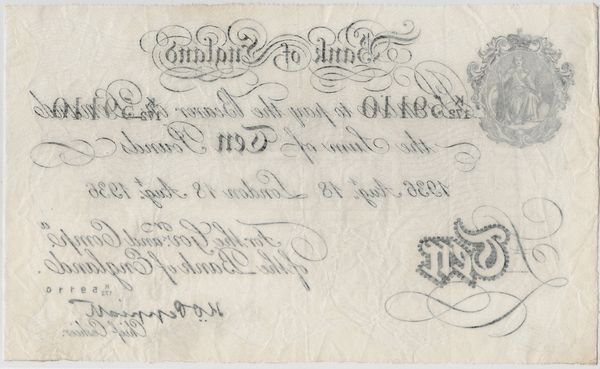 Bank of England
K/172 59110 to pay the Bearer K/172 59110
the Sum of Ten Pounds
1936 Augst 18 London 18 Augst 1936
For the Govr and Compa
of the Bank of England.
Ten
K/172 59110
K O Peppiatt
Chief Cashier.